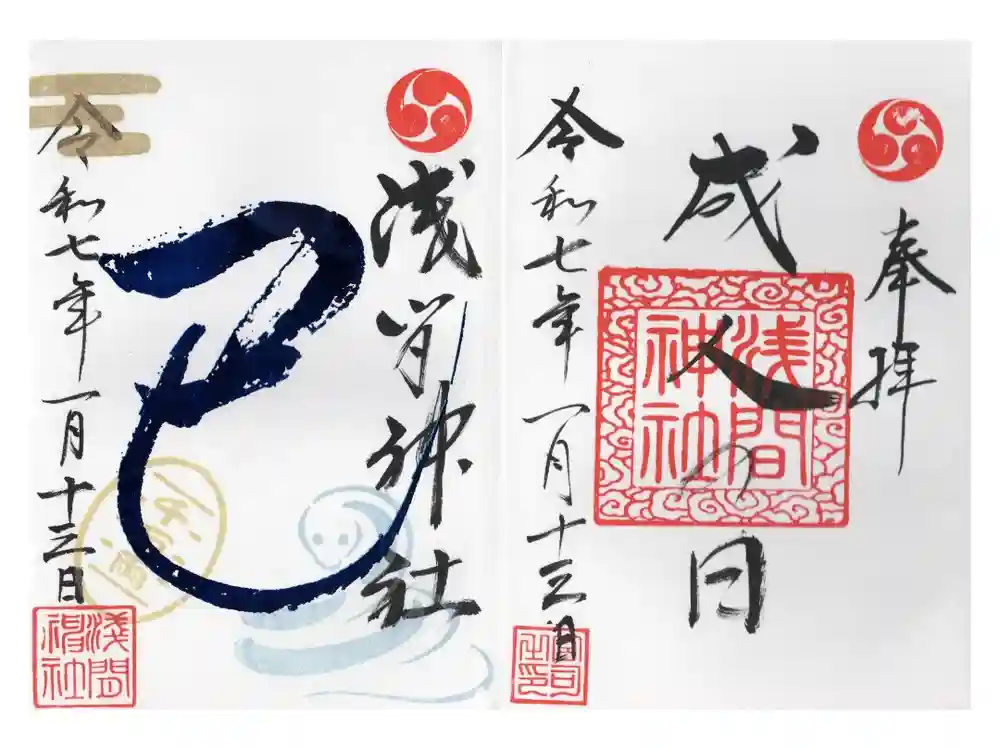 奉拝
成人の日
浅間神社
令和七年一月十三日
宮司之印
浅間神社
巳
令和七年一月十三日
浅間神社